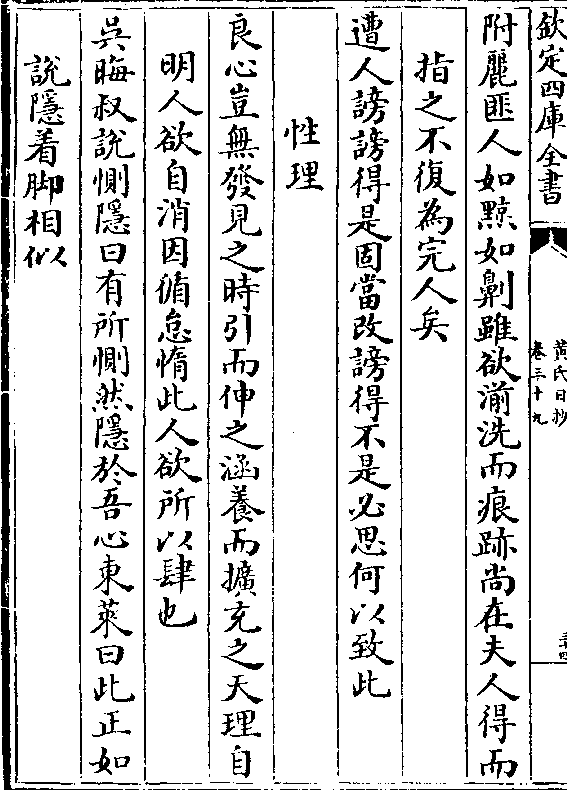 欽定四庫全書
黃氏日抄
卷三十九
三十四
附麗匪人如黥如劓雖欲湔洗而痕跡尚在夫人得而
指之不復為完人矣
遭人謗謗得是固當改謗得不是必思何以致此
性理
良心豈無發見之時引而伸之涵養而擴充之天理自
明人欲自消因循怠惰此人欲所以肆也
吳晦叔說惻隱曰有所惻然隱於吾心東萊曰此正如
說隱着脚相似